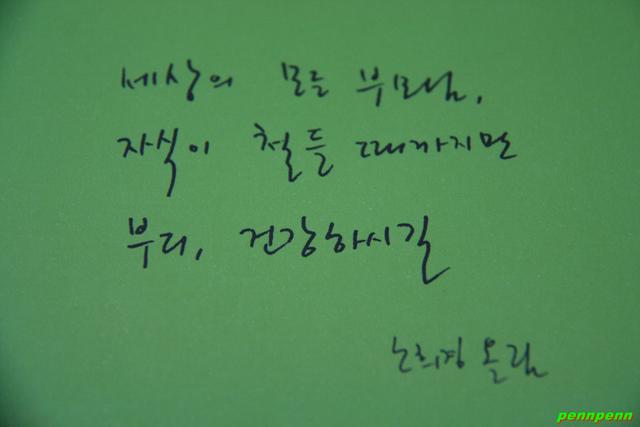 세상의 모든 부모님,
자식이 철들 때까지만
부디, 건강하시길
노희경 올림
pennpenn